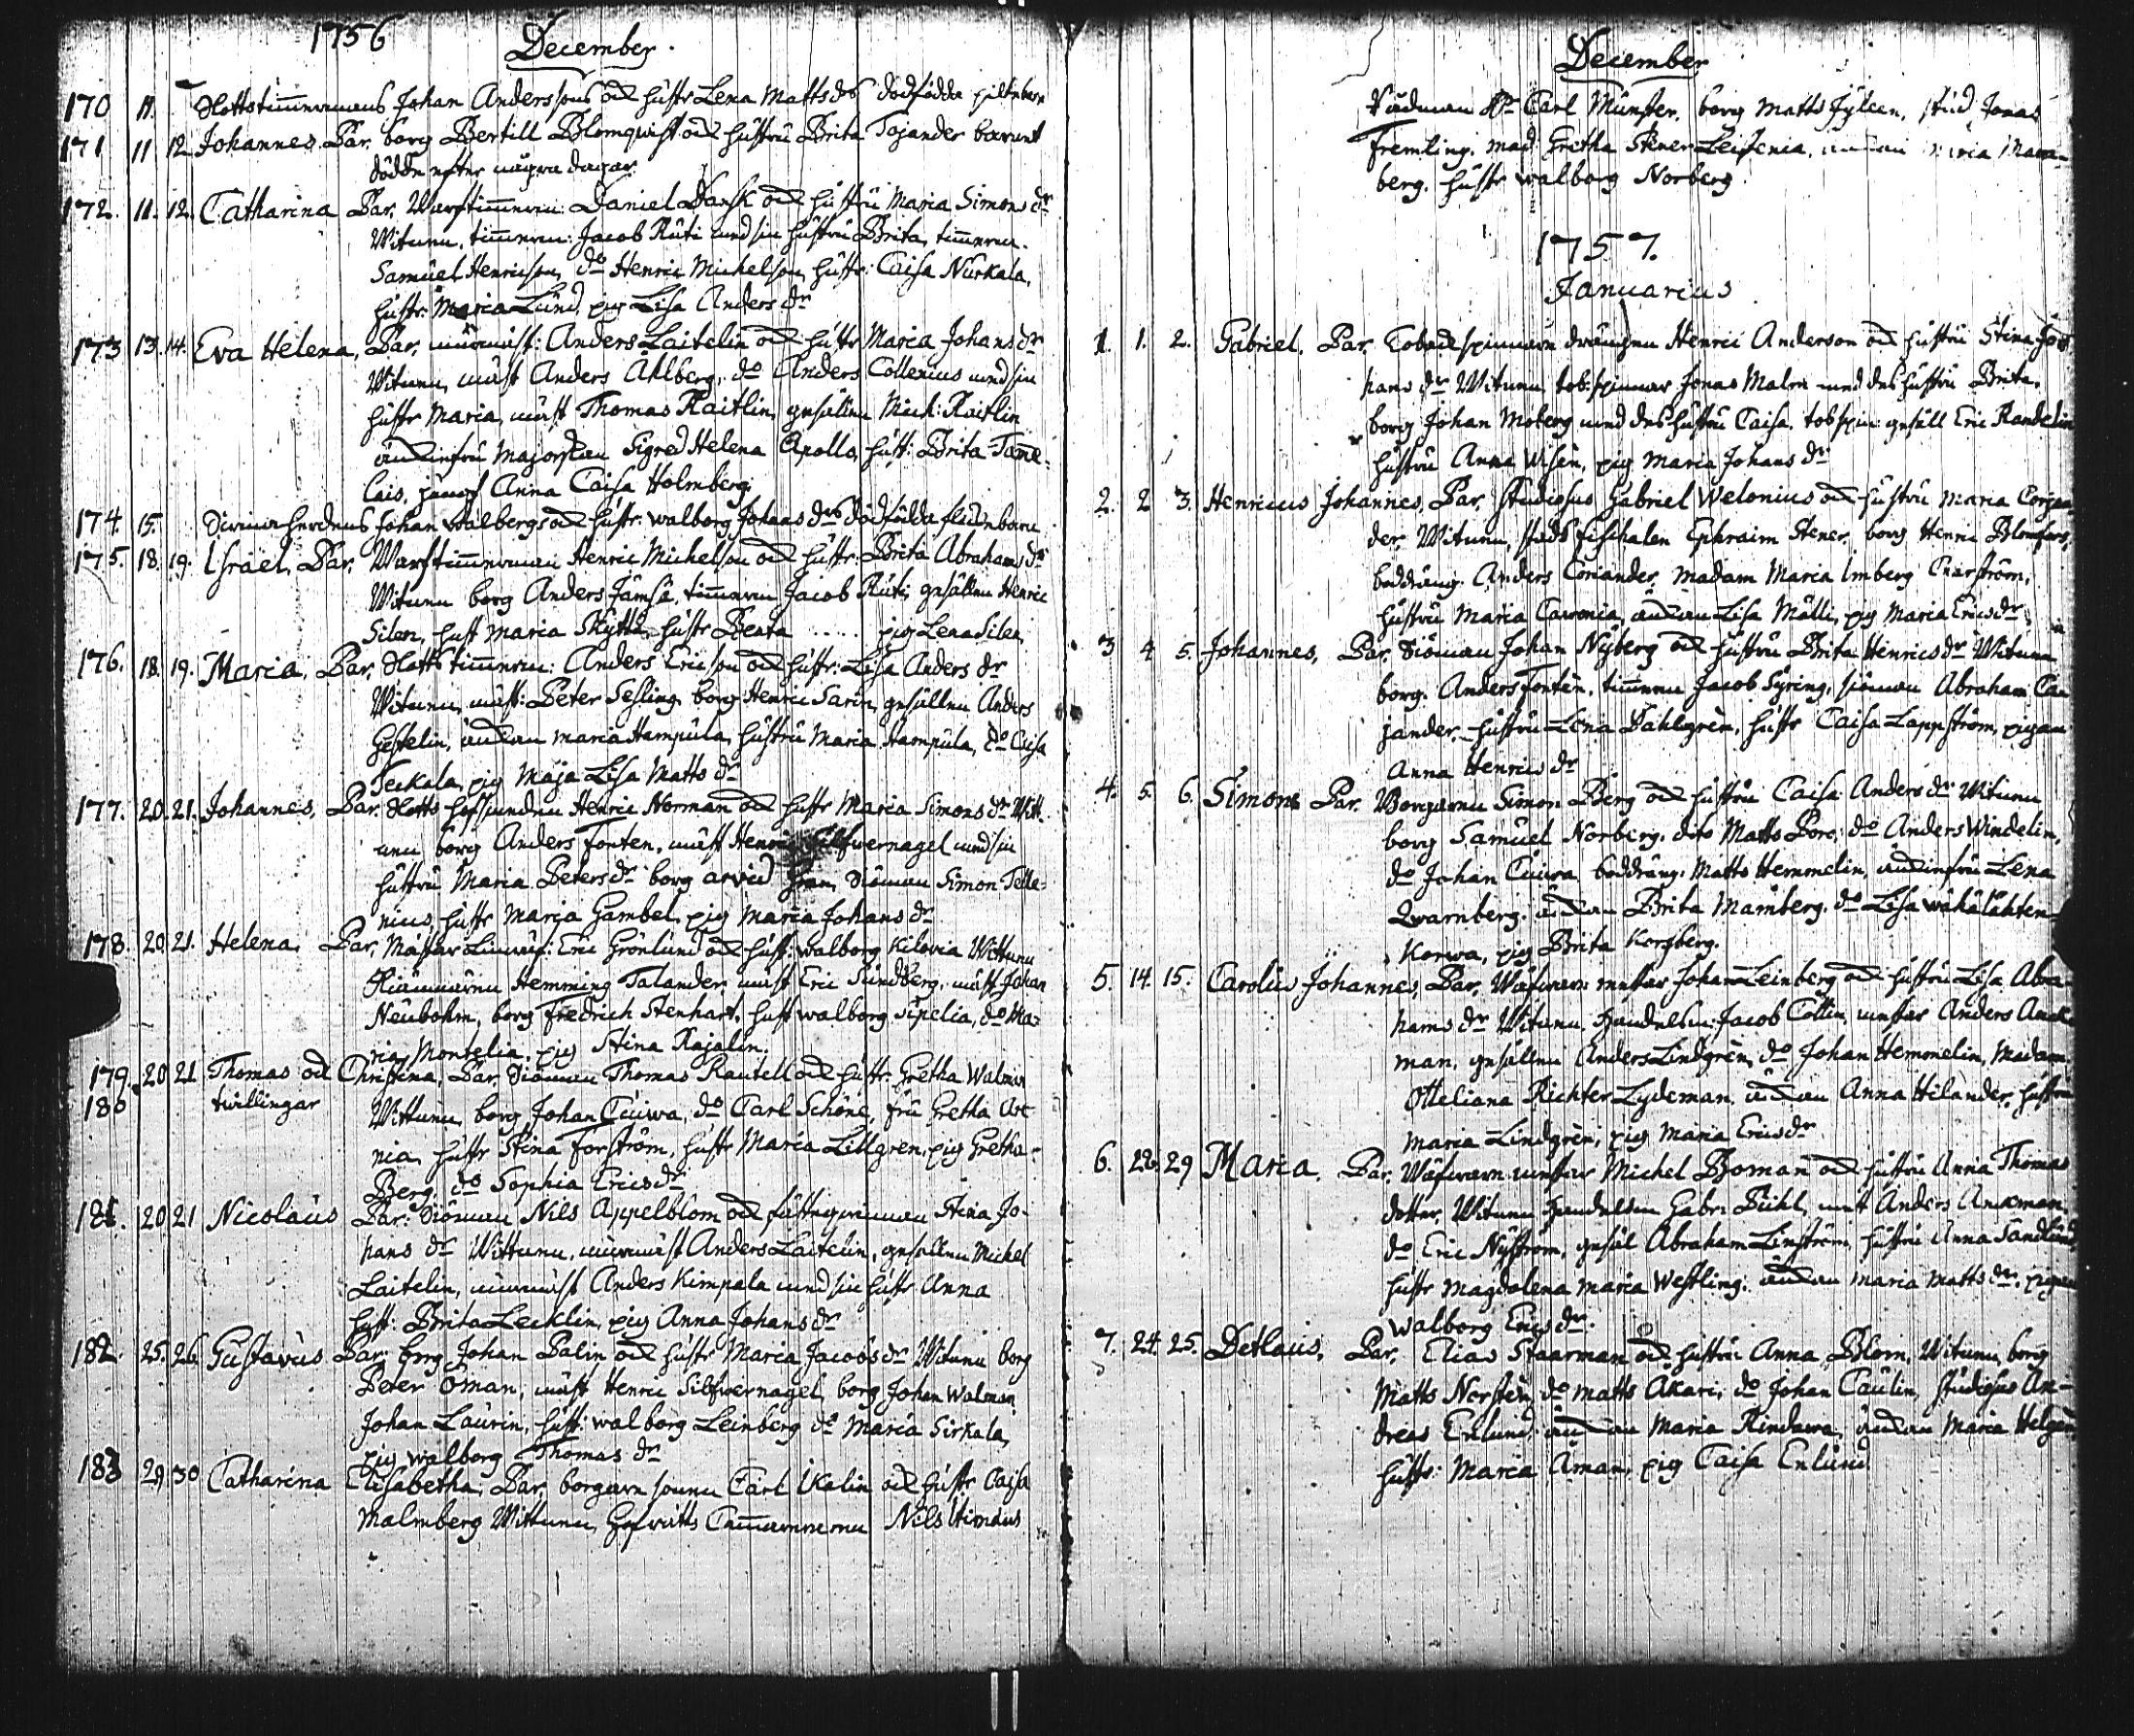 1756
December.
170 11. Slottstimmermans Johan Anderssons och hustr Lena Matts drs dödfödda piltebarn
171 11 12 Johannes. Par. borg Bertill Blomqwist och hustru Brita Tojander barnet
dödde efter några dagar
172. 11. 12. Catharina Par. Warfstimmerm: Daniel Dansk och hustru Maria Simons dr
Witnen, timmerm: Jacob Rüti med sin hustru Brita, timmerm.
Samuel Henricson, do Henric Michelson, hustr: Caisa Nurkala,
hustr: Maria Lund, pig Lisa Anders dr
173 13. 14. Eva Helena, Par. murmäst: Anders Laitelin och hustr Maria Johans dr
Witnen, mäst Anders Ahlberg, do Anders Collenius med sin
hustr Maria, mäst Thomas Raitlin, gesällen Mich: Raitlin
änckiefru Majorskan Sigred Helena Apollo, hust: Brita Tam̄e-
lais, jungf Anna Caisa Holmberg.
174. 15. Johan Walbergs och hustr. Walborg Johans drs dödfödda flickebarn
175. 18. 19. Israel, Par. Warfstimmerman Henric Michelson och hustr: Brita Abrahams dr
Witnen borg Anders Jämsä, timmerm Jacob Rüti, gesällen Henric
Silen, hust Maria Skyttä, hustr Beata ..... pig Lena Silen
176. 18. 19. Maria. Par. Slottstimmerm: Anders Ericson och hustr: Lisa Anders dr
Witnen, mäst: Peter Sesling, borg Henric Sarin, gesällen Anders
Gestelin, änckan Maria Hampula, hustru Maria Hampula, do Caisa
Teckala, pig Maja Lisa Matts dr
177. 20. 21. Johannes, Par. Slotts Henric Norman och hustr Maria Simons dr Witt-
nen borg Anders Fonten, mäst Henric Silfwernagel med sin
hustru Maria Peters dr borg Arvid Gran, Siöman Simon Telle-
nius, hustr Maria Gambel, pig Maria Johans dr
178. 20. 21. Helena. Par. Mästar Eric Grönlund och hust: Walborg Kilovia Wittnen
Hemming Talander, mäst Eric Sundberg, mäst Johan
Neubohm, borg Fredrich Stenhart, hust Walborg Sipelia, do Ma-
ria Montelia, pig Stina Rajalin.
179. 20 21 Thomas och Christina, Par. Siöman Thomas Rautell och hustr: Gretha Walmin
180 twillingar Wittnen, borg Johan Cuiwa, do Carl Schöne, fru Gretha Arc-
nia, hustr Stina Forström, hustr Maria Lillgren, pig Gretha
Berg, do Sophia Erics dr
181. 20 21 Nicolaus Par: Siöman Nils Appelblom och Stina Jo-
hans dr Wittnen, murmäst Anders Laitelin, gesällen Michel
Laitelin, murmäst Anders Kimpala med sin hustr Anna
hust: Brita Lecklin, pig Anna Johans dr
182. 25. 26. Gustavus Par: borg Johan Palin och hustr Maria Jacobs dr Witnen borg
Peter Öman, mäst Henric Silfwernagel, borg Johan Walman,
Johan Laurin, hust: Walborg Leinberg do Maria Sirkala,
pig Walborg Thomas dr
183 29 30 Catharina Elisabetha, Par. borgare sonen Carl Ikalin och hustr Caisa
Malmberg Wittnen, Hofrätts Nils
December
Rådman Hr Carl Münster, borg Matts Jyleen, stud Jonas
Fremling, mad Gretha Stener Leistenia, änckan Maria Mara-
berg, hustr Walborg Norberg.
1757.
Januarius
1. 1. 2. Gabriel. Par. Tobackspinnare drängen Henric Anderson och hustru Stina Jo-
hans dr Witnen, tob: spinnar Jonas Malm med dess hustru Brita,
borg Johan Moberg med dess hustru Caisa, tobspin: gesäll Eric Randelin
hustru Anna Wisen, pig Maria Johans dr
2. 2 3. Henricus Johannes, Par. Studiosus Gabriel Welonius och hustru Maria Corian-
der, Witnen, stadsfischalen Ephraim Stener, borg Henric Blomfors,
boddräng. Anders Coriander, madam Maria Imberg Enarström,
hustru Maria Cawonia, änckan Lisa Mälli, pig Maria Erics dr
3 4 5. Johannes, Par. Siöman Johan Nyberg och hustru Brita Henrics dr Witnen
borg. Anders Fonten, timmerm Jacob Syring, siöman Abraham Ca-
jander, hustru Lena Dahlgren, hustr Caisa Lappström, pigan
Anna Henrics dr
4. 5. 6. Simon Par. Borgaren Simon Berg och hustru Caisa Anders dr Witnen
borg Samuel Norberg, dito Matts Boro, do Anders Windelin,
do Johan Cuiwa, boddräng. Matts Hemmelin, änckiefru Lena
Qwarnberg, änckan Brita Mamberg, do Lisa Wähälähten-
korwa, pig Brita Korsberg.
5. 14. 15. Carolus Johannes, Par. Wäfware mästar Johan Leinberg och hustru Lisa Abra-
hams dr Witnen, Handelsm: Jacob Collin, mästar Anders
man, gesällen Anders Lindgren, do Johan Hemmelin, Madam
Otteliana Richter Lydeman, änckan Anna Hilander, hustru
Maria Lindgren, pig Maria Erics dr
6. 28. 29 Maria. Par. Wäfware mästar Michel Boman och hustru Anna Thomas
dotter, Witnen Handelsm Gabr: Bühl, mäst Anders
do Eric Nyström, gesäl Abraham Linström, hustru Anna Sandlund
hustr Magdalena Maria Westling, änckan Maria Matts dr, pigan
Walborg Erics dr.
7. 24. 25. Detlaus. Par. Elias Staarman och hustru Anna Blom, Witnen, borg
Matts Norsten, do Matts Äkäri, do Johan Caulin, studiosus An-
dreas Enlund, änckan Maria Rindawa, änckan Maria Helgren
hustr: Maria Åman, pig Caisa Enlund